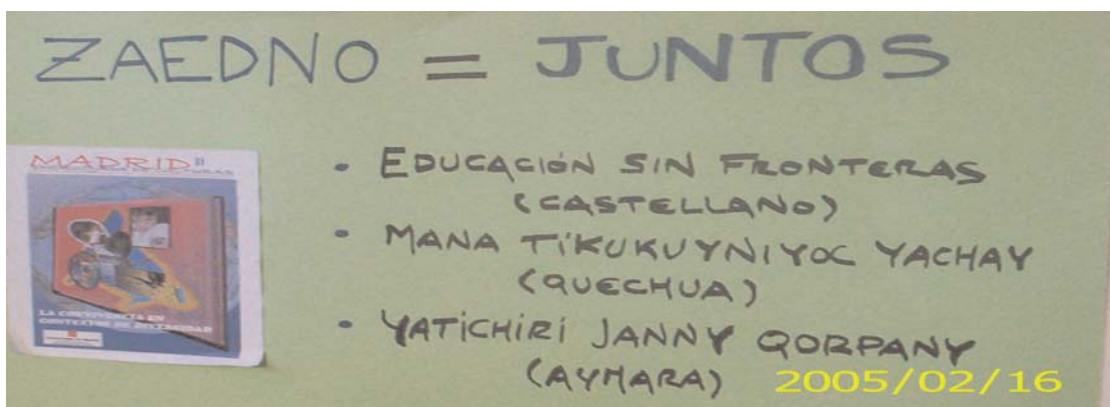 ZAEDNO = JUNTOS
MADRID
LA CONVIVENCIA EN
CONTEXTOS DE DIVERSIDAD
• EDUCACIÓN SIN FRONTERAS
(CASTELLANO)
• MANA TIKUKUYNIYOC YACHAY
(QUECHUA)
• YATICHIRI JANNY QORPANY
(AYMARA)
2005/02/16